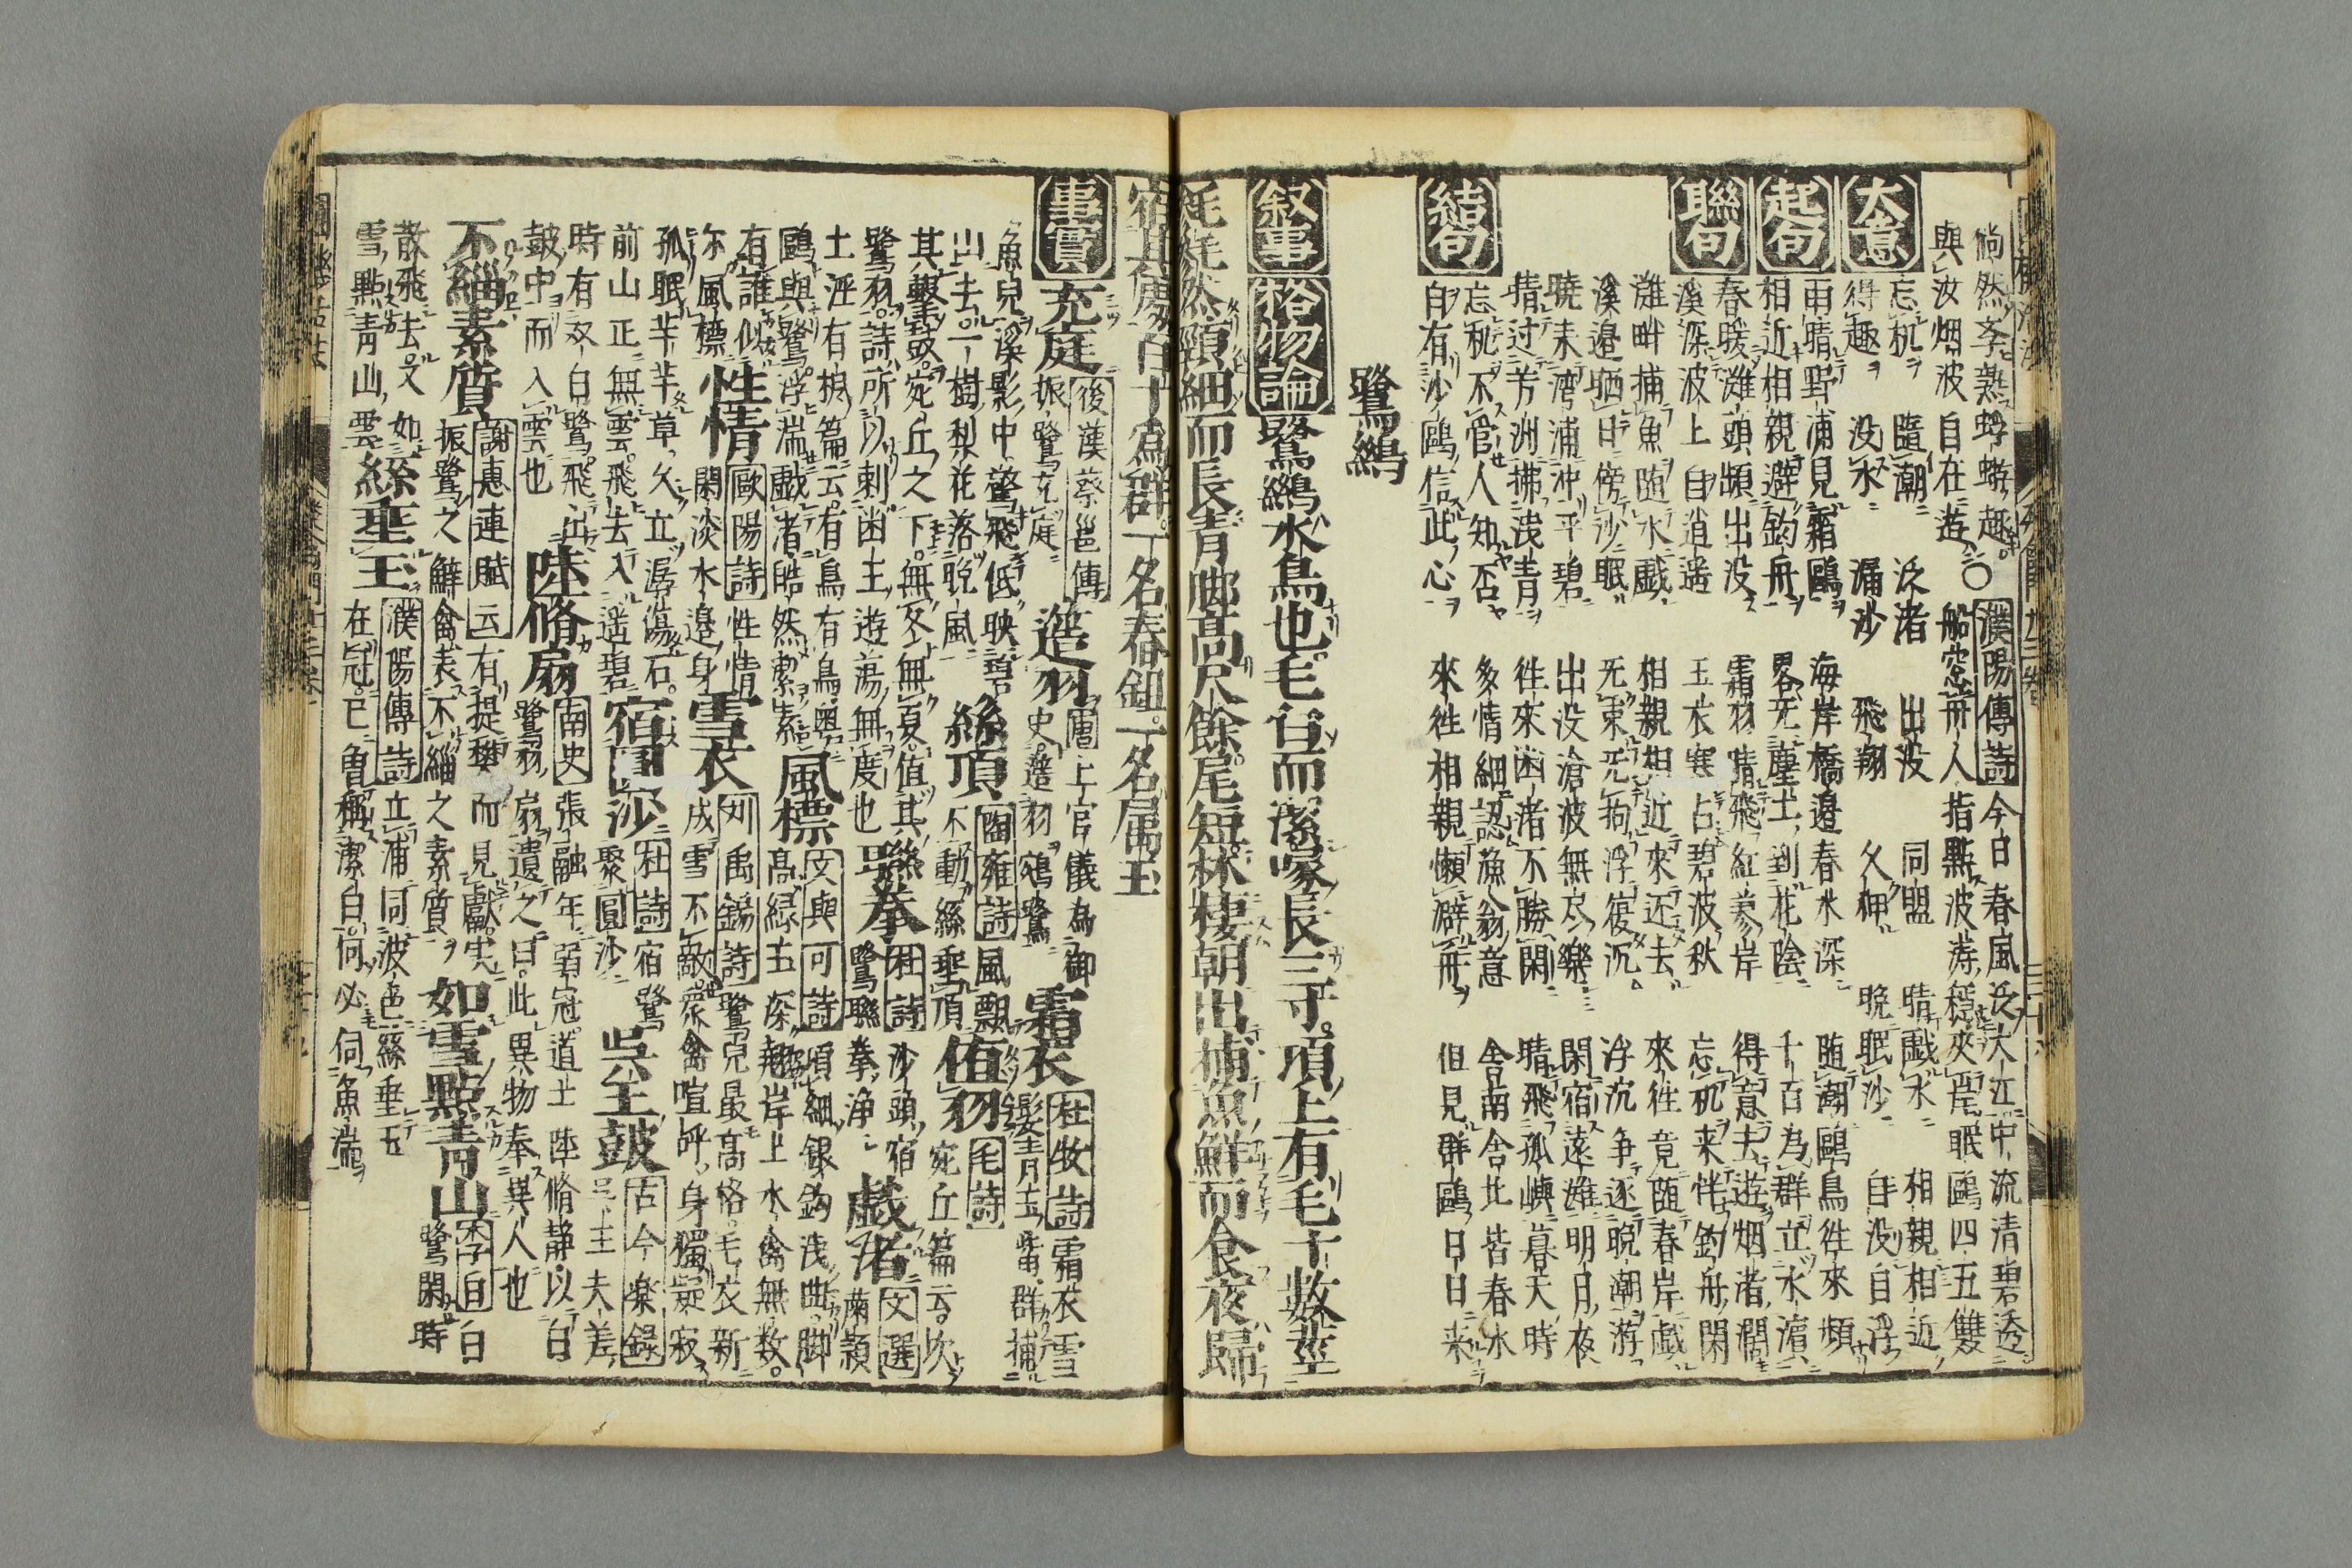 倘然夸熟蜉蝣趣○濮陽傳詩今日春風泛大江中流清碧透
與汝烟波自在遊船窓舟人指點波濤穩夾岸眠鷗四五雙
大意
忘机隨潮泛渚出没同盟晴戯水相親相近
得趣没水漏沙飛翔久狎晩眠沙自没自浮
起句
雨晴野浦見霜鷗海岸橋邉春水深随潮鷗鳥徃來頻
相近相親避釣舟畧无塵土到花陰千百為群立水濵
聯句
春暖灘頭頻出没霜羽晴飛紅蓼岸得意去遊烟渚濶
溪深波上自逍遥玉衣寒占碧波秋忘机来伴釣舟閑
灘畔捕魚随水戯相親相近來还去來徃竟随春岸戯
溪邉晒日傍沙眠无束无拘浮復沉浮沉争逐晩潮游
暁来湾浦冲平碧出没滄波無尽樂閑宿遠灘明月夜
晴过芳洲拂浅青徃來幽渚不勝閑晴飛孤嶼暮天時
結句
忘秘不管人知否多情細認漁翁意舎南舎北皆春水
自有沙鷗信此心來徃相親懶避舟但見群鷗日日来
鷺鷀
叙事
格物論鷺鷀水鳥也毛白而潔喙長三寸項上有毛十数莖
毵毵然頸細而長青脚高尺餘尾短林棲朝出捕魚鮮而食夜歸
宿其傍百十為群一名春鉏一名属玉
事實
充庭後漢蔡邕傳振鷺充庭造羽唐上官儀為御史造羽鵷鷺霜衣杜牧詩霜衣雪髪青玉觜群捕
魚兒溪影中驚飛低映碧山去一樹梨花落晩風絲項陶雍詩風飄不動絲垂頂值羽毛詩宛丘篇云坎
其撃鼓宛丘之下無冬無夏值其鷺羽詩所以刺幽王遊蕩無度也聯拳杜詩沙頭宿鷺聯拳浄戯渚文選蘭頴
土浮有根篇云有鳥有鳥奥鷗與鷺浮湍戯渚皓然潔素風標文與可詩頸細銀鈎浅曲脚高緑玉深翹岸上水禽無数
有誰似尓風標性情歐陽詩性情閑淡水邉身雪衣刘禹錫詩鷺兒最高格毛衣新成雪不敵衆禽喧呼身獨寂
孤眠芊芊草久立潺湲石前山正無雲飛去入遥碧宿圓沙杜詩宿鷺聚圓沙呉王鼓古今楽録呉王夫差
時有双白鷺飛出鼓中而入雲也陸脩扇南史張融年弱冠道士陸脩静以白鷺羽扇遺之曰此異物奉異人也
不緇素質謝惠連賦云有提樊而見獻寔振鷺之鮮禽表不緇之素質如雪點青山李白白鷺閑時
散飛去又如雪點青山雲絲垂玉濮陽傳詩立浦同波色絲垂玉在冠已曽稱潔白何必伺魚湍